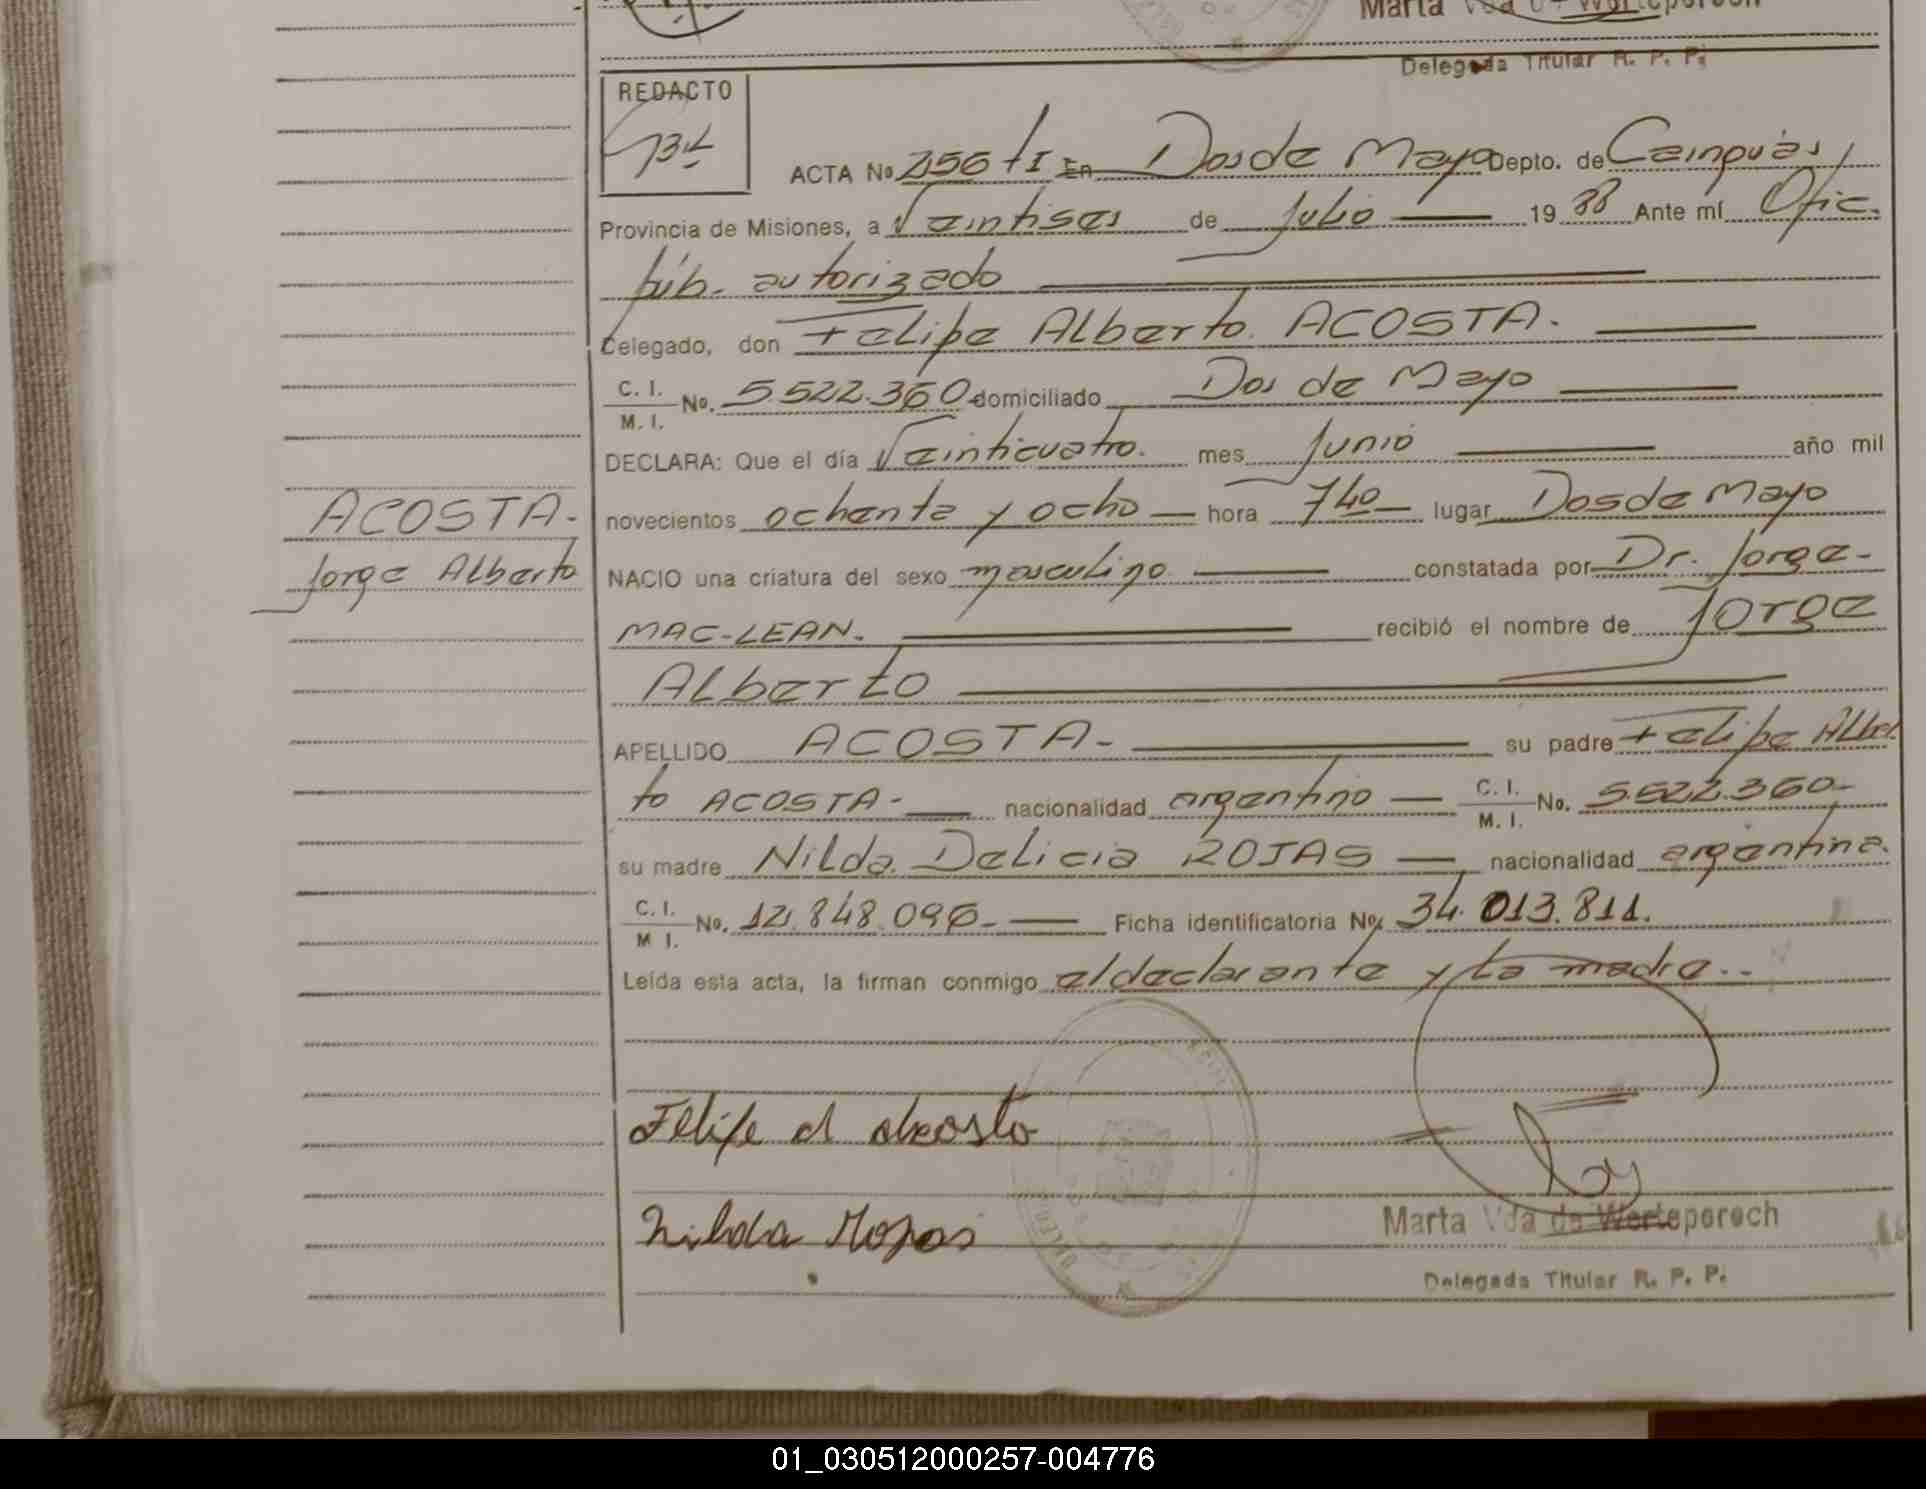 Marta Vda de Werteperoch
Delegada Titular R. P. P.
REDACTO
ACTA No 256 tI En Dos de Mayo Depto. de Cainguás,
Provincia de Misiones, a Veintiseis de Julio 19 88 Ante mí Ofic.
púb. autorizado
Delegado, don Felipe Alberto ACOSTA.
C. I.
M. I. No. 5.522.360 domiciliado Dos de Mayo
DECLARA: Que el día Veinticuatro. mes Junio año mil
novecientos ochenta y ocho hora 740 lugar Dos de Mayo
ACOSTA.
Jorge Alberto
NACIO una criatura del sexo masculino constatada por Dr. Jorge
MAC-LEAN. recibió el nombre de Jorge
Alberto
APELLIDO ACOSTA. su padre Felipe Alber
to ACOSTA. nacionalidad argentino C. I. M. I. No. 5.522.360
su madre Nilda Delicia ROJAS nacionalidad argentina.
C. I. M I. No. 12.848.096 Ficha identificatoria No. 34.013.811.
Leída esta acta, la firman conmigo el declarante y la madre..
Felipe A Acosta
Nilda Rojas
Marta Vda de Werteperoch
Delegada Titular R. P. P.
01_030512000257-004776